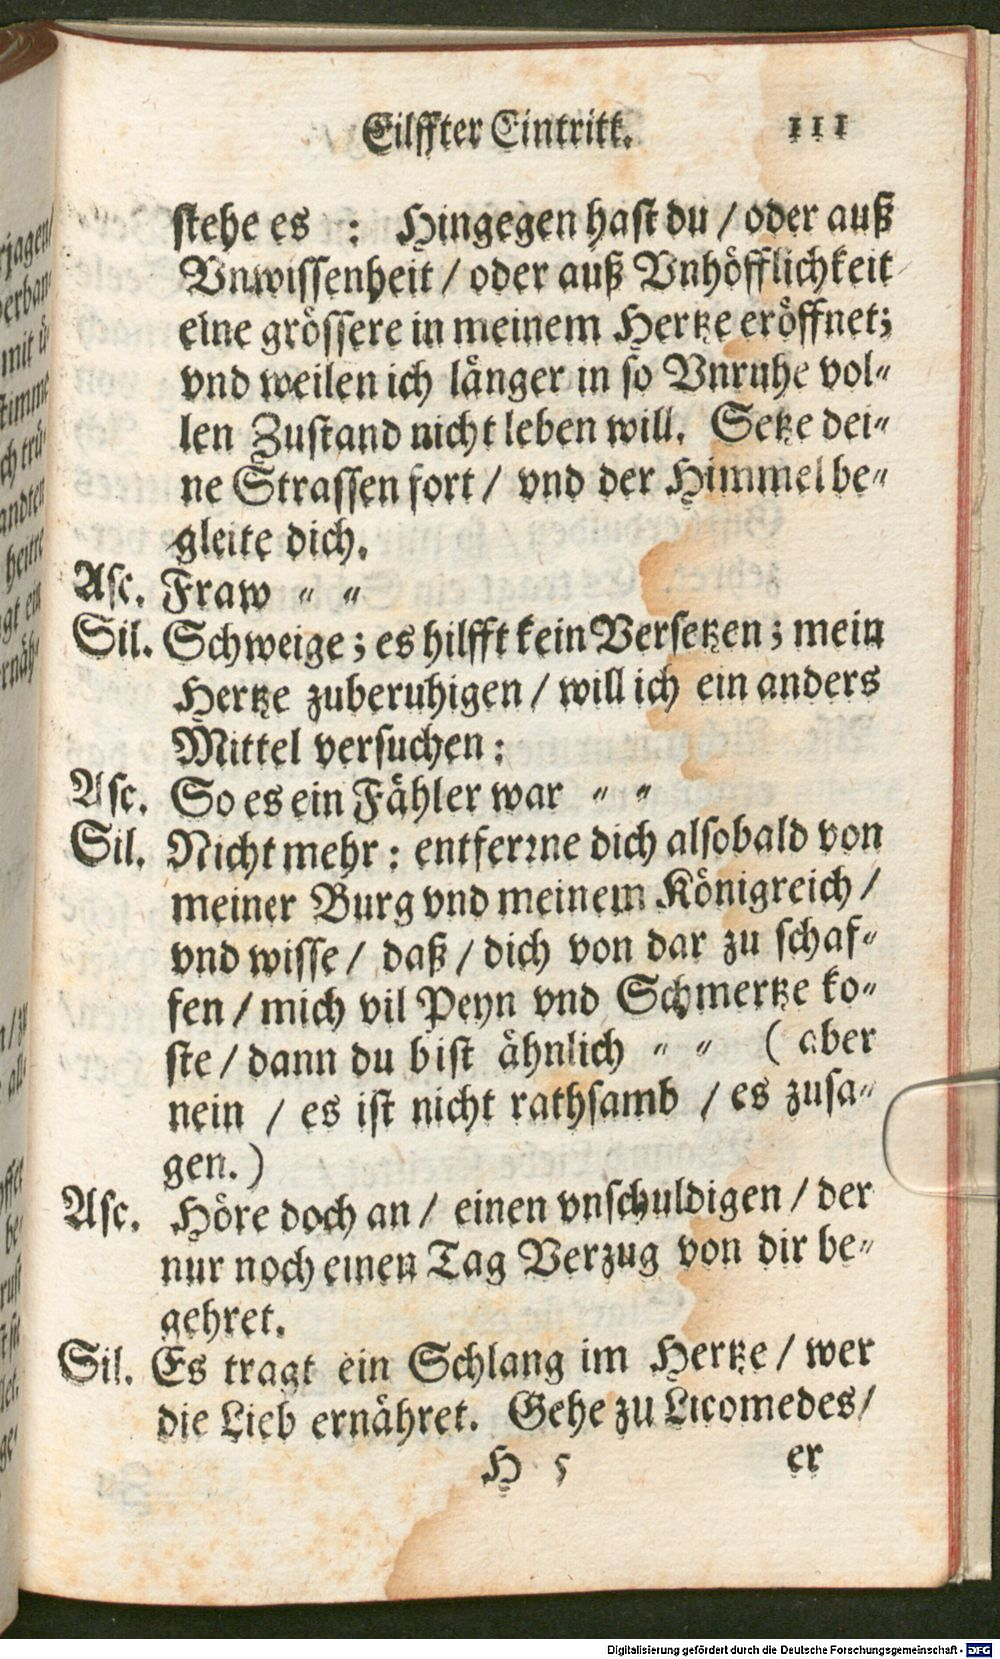 Eilffter Eintritt. 111
stehe es : Hingegen hast du / oder auß
Vnwissenheit / oder auß Vnhöfflichkeit
eine grössere in meinem Hertze eröffnet;
vnd weilen ich länger in so Vnruhe vol-
len Zustand nicht leben will. Setze dei-
ne Strassen fort / vnd der Himmel be-
gleite dich.
Asc. Fraw " "
Sil. Schweige; es hilfft kein Versetzen; mein
Hertze zuberuhigen / will ich ein anders
Mittel versuchen:
Asc. So es ein Fähler war " "
Sil. Nicht mehr: entferrne dich alsobald von
meiner Burg vnd meinem Königreich /
vnd wisse / daß / dich von dar zu schaf-
fen / mich vil Peyn vnd Schmertze ko-
ste / dann du bist ähnlich " " ( aber
nein / es ist nicht rathsamb / es zusa-
gen.)
Asc. Höre doch an / einen vnschuldigen / der
nur noch einen Tag Verzug von dir be-
gehret.
Sil. Es tragt ein Schlang im Hertze / wer
die Lieb ernähret. Gehe zu Licomedes/
H 5 er
Digitalisierung gefördert durch die Deutsche Forschungsgemeinschaft - DFG